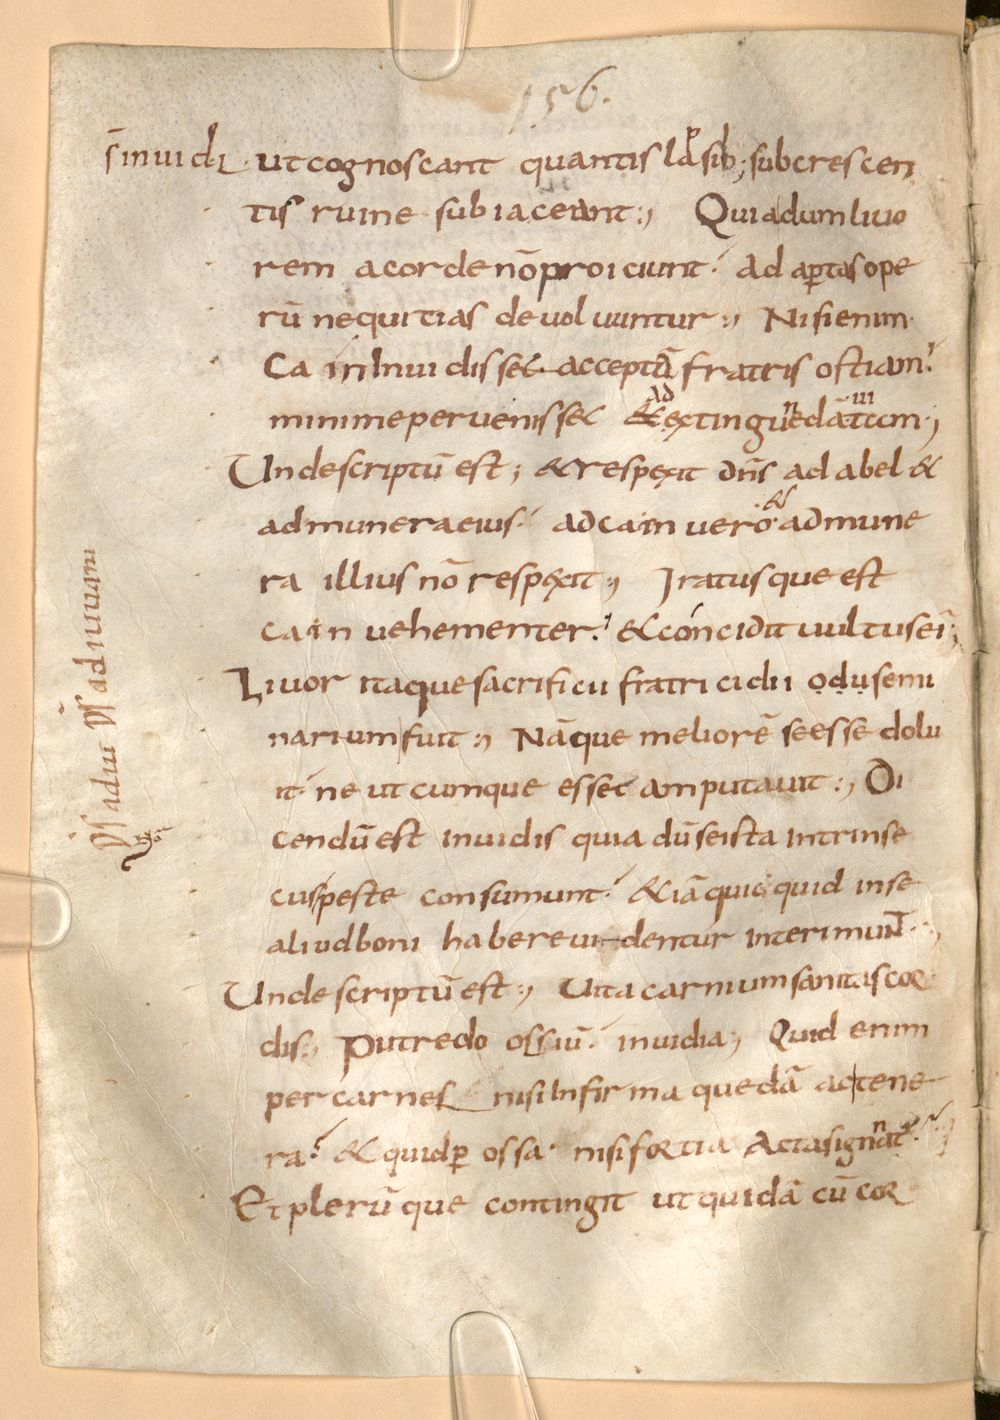 156.
s̄ inuidi · ut cognoscant quantis lapsib; subcrescen
tis ruine subiaceant:, Qui dum liuo
rem a corde nō proiciunt. Ad aptas ope
rū nequitias deuoluuntur:, Nisi enim
Cain Inuidisset acceptā fratris ostiam.
minime peruenisset ad extinguendā uitam;
Unde scriptū est; & respexit dn̄s ad abel &
ad munera eius. ad cain uero & ad mune
ra illius nō respexit; Iratusque est
cain uehementer. & concidit uultus ei;
Liuor itaque sacrificii fratricidii odii semi
narium fuit:, Nāque meliorē se esse dolu
it ne utcumque esset amputauit:, Di
cendū est inuidis quia dū se ista intrinse
cus peste consumunt. &iā quicquid in se
aliud boni habere uidentur interimunt.,
Unde scriptū est:, Uita carnium sanitas cor
dis:, Putredo ossiū. inuidia; Quid enim
per carnes nisi Infirma quedā ac tene
ra. & quid p ossa. nisi fortia Acta signnat
Et plerūque contingit ut quidā cū cor
ps̄ adiu ps̄ adiuuani